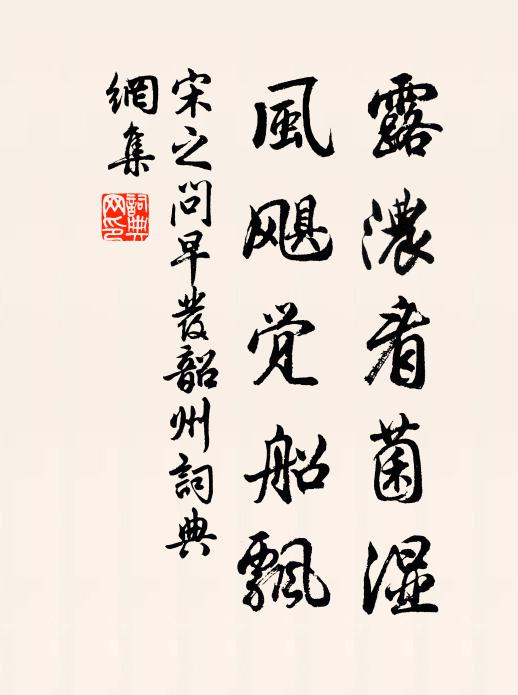 露濃看菌湿
風飓覺船飄
宋之問早發韶州詞典
網集
詞典网印